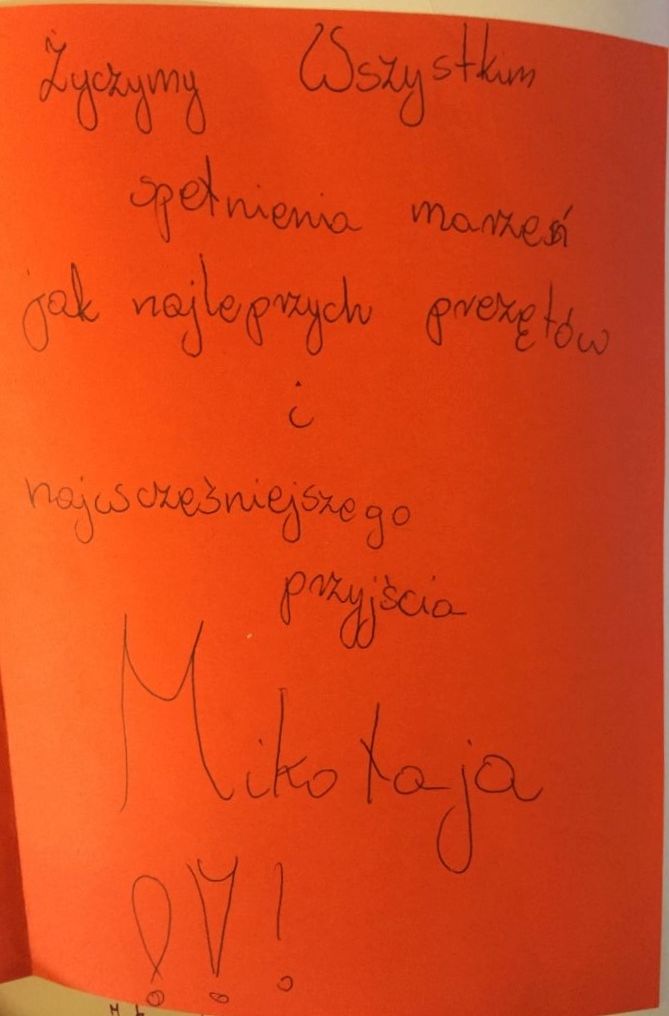 Życzymy Wszystkim
spełnienia marzeń
jak najleprzych prezętów
i
najwscześniejszego
przyjścia
Mikołaja
!!!